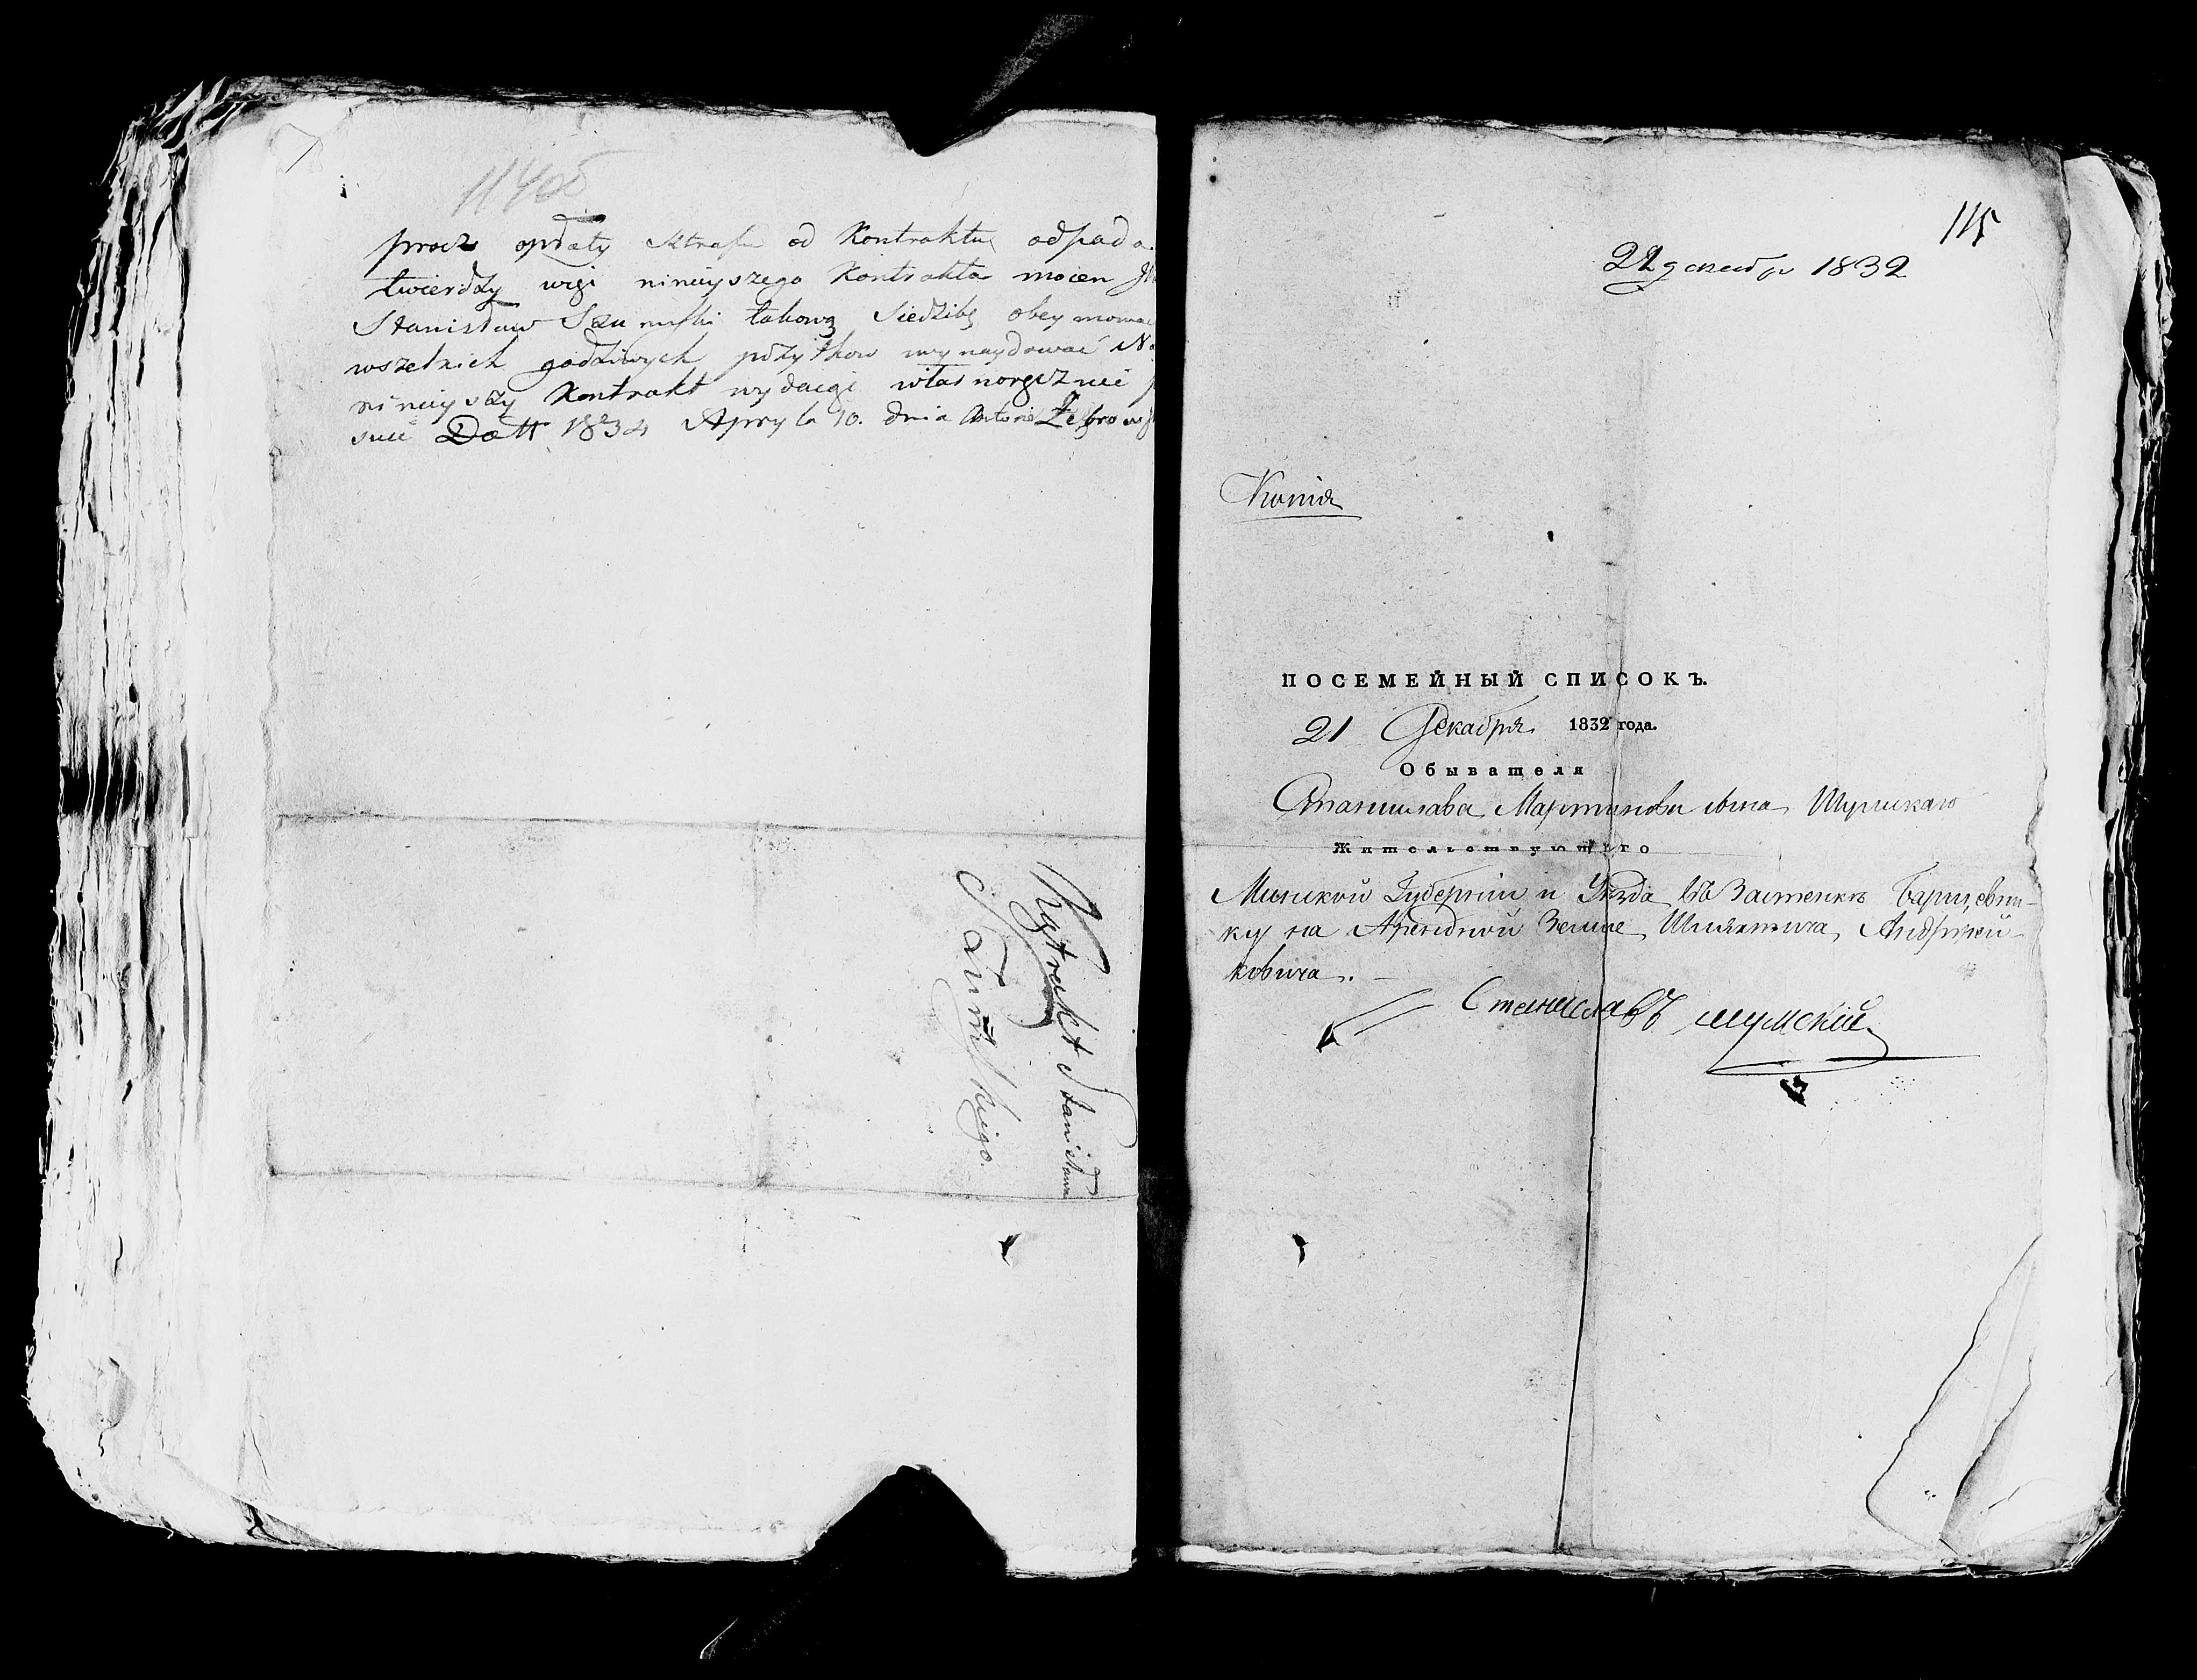 114об
procz opłaty sztrafu od Kontraktu odpada
twierdzy więc ninieyszego Kontrakta mocen
Stanisław Szumski takową Siedzibę obeymowa
wszelkich godziwych pożytkow wynaydować
ninieyszy Kontrakt wydaigc własnoręcznie
suie Datt 1834 Apryla 10. dnia Antoni Żebrows
Kontrakt Stanisława
Szumskiego.
115
22 декабр 1832
Копія
ПОСЕМЕЙНЫЙ СПИСОКЪ.
21 Декабря 1832 года.
Обывателя
Станислава Мартинова сына Шумскаго
Жительствующаго
Минской Губерніи и Уезда въ Застенке Барцевти-
ку на Арендной Земле Шляхтича Андржей-
ковича.
Станиславъ Шумскій